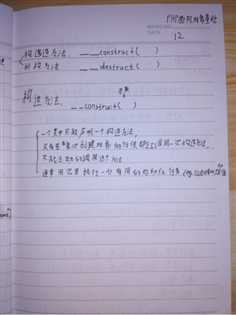 PHP面向对象基础
12
构造方法 __construct( )
析构方法 __destruct( )
参数
构造方法 __construct( )
一个类中只能声明一个构造方法,
只有在每次创建对象的时候都会去调用一次构造方法,
不能主动的调用这个方法
通常用它来执行一些有用的初始化任务